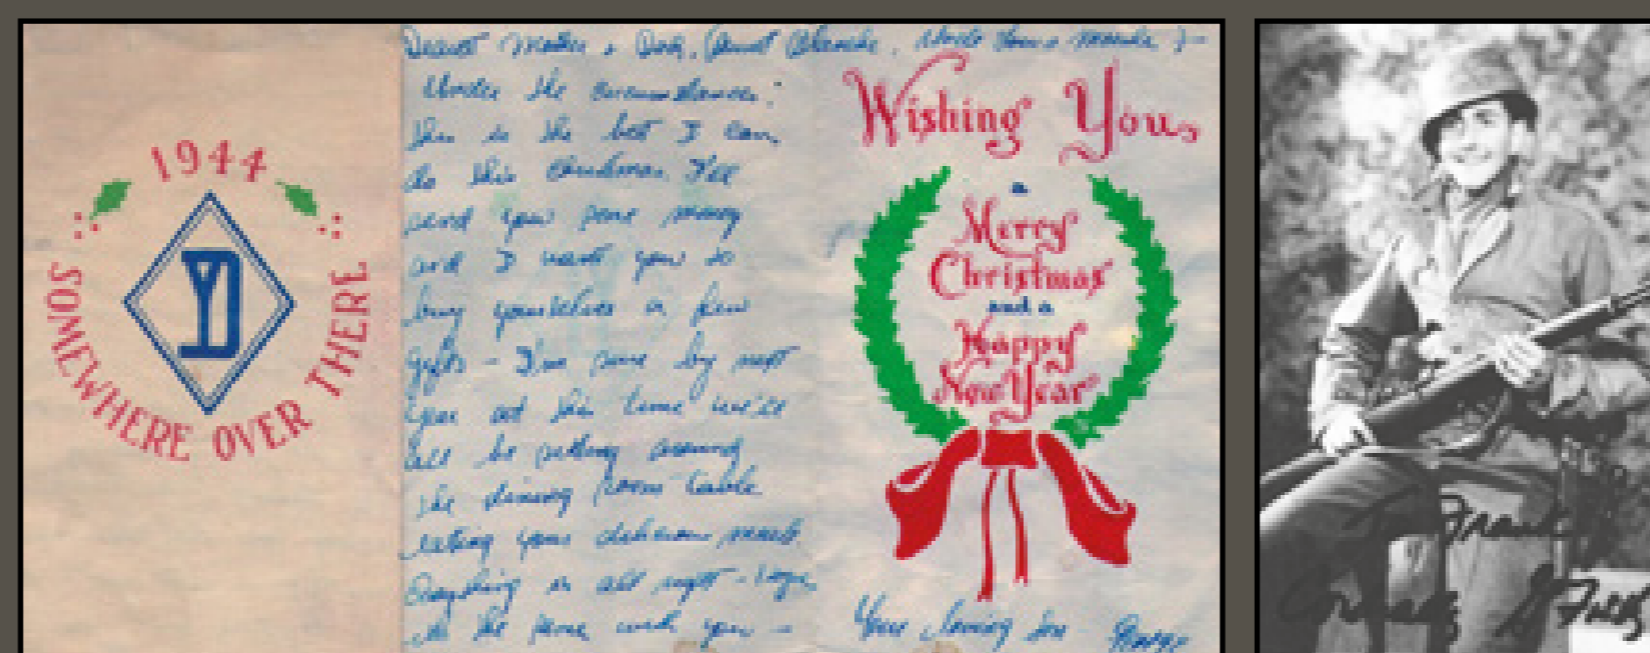 1944
YD
SOMEWHERE OVER THERE
Dearest Mother & Dad, (Aunt Blanche, Uncle
Under the circumstances:
this is the best I can
do this Christmas. I'll
send you some money
and I want you to
buy yourselves a few
gifts - I'm sure by next
year at this time we'll
all be sitting around
the dining room table
eating your delicious meals.
Everything is all right - hope
it's the same with you -
Wishing You
a
Merry
Christmas
and a
Happy
New Year
Your loving son George
To Frank